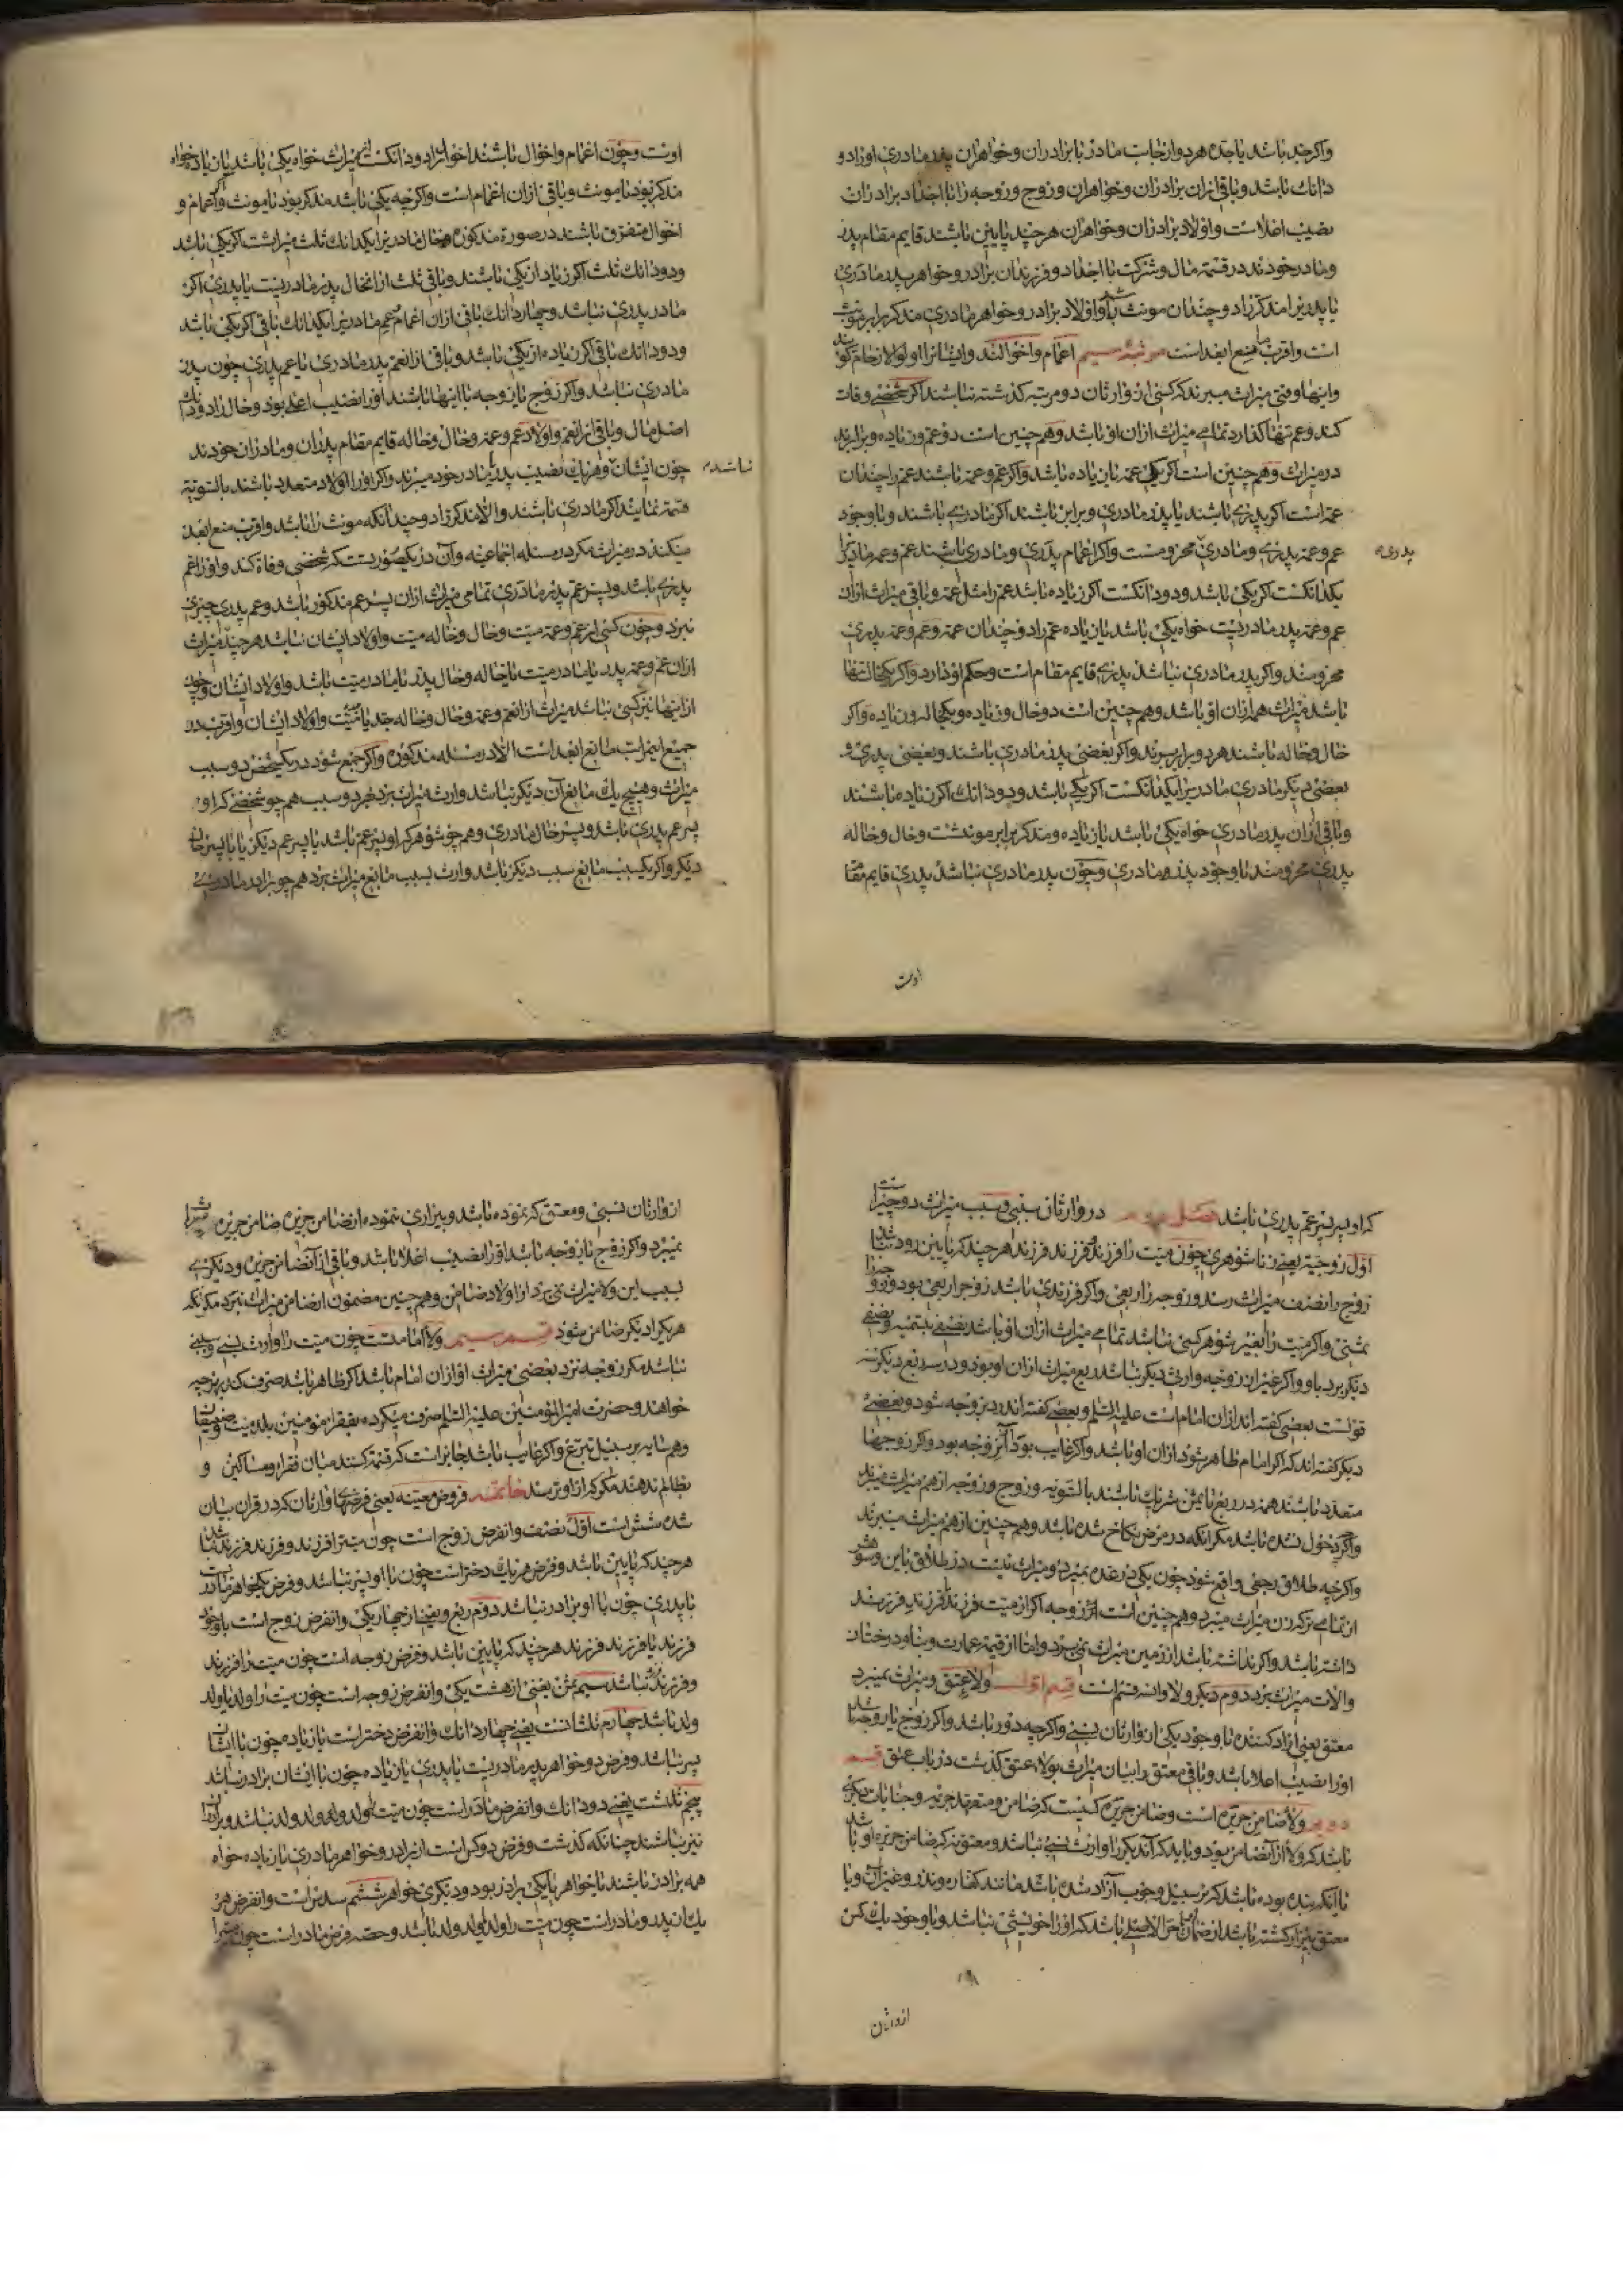 واکر جد باشد یا جده هر دو از جانب مادر با برادران و خواهران پدر مادری او را دو
دانک باشد و باقی از ان برادران و خواهران و زوج و زوجه را با اجداد برادران
نصیب اعلاست و اولاد برادران و خواهران هر چند پایین باشند قایم مقام پدر
و مادر خودند در قسمة مال و شرکت با اجداد و فرزندان برادر و خواهر پدر مادری
یا پدریرا مذکر را دو چندان مونث باشد و اولاد برادر و خواهر مادری مذکر برابر مونث
است و اقرب مانع ابعد است مرتبهٔ سیم اعمام و اخوالند و ایشانرا اولوالارحام کویند
و اینها وقتی میراث میبرند که کسی از وارثان دو مرتبه کذشته نباشند اکر شخصی وفات
کند و عم تنها کذارد تمامی میراث از ان او باشد و هم چنین است دو عم و زیاده و برابرند
در میراث و هم چنین است اکر یکی عمه یا زیاده باشد و اکر عم و عمه باشند عم را چندان
عمه است اکر پدری باشند یا پدر مادری و برابر باشند اکر مادری باشند و با وجود
عم و عمه پدری و مادری محرومست و اکر اعمام پدری و مادری باشند عم و عمه مادریرا
پدری
یکدانکست اکر یکی باشد و دو دانکست اکر زیاده باشد عم را مثل عمه و باقی میراث از ان
عم و عمه پدر مادریست خواه یکی باشد یا زیاده عم را دو چندان عمه و عم و عمه پدری
محرومند و اکر پدر مادری نباشد پدری قایم مقام است و حکم او دارد و اکر یکخال تنها
باشد میراث همه از ان او باشد و هم چنین است دو خال و زیاده و یکخاله و زیاده و اکر
خال و خاله باشند هر دو برابر برند و اکر بعضی پدر مادری باشند و بعضی پدری و
بعضی دیکر مادری مادریرا یکدانکست اکر یکی باشد و دو دانک اکر زیاده باشند
و باقی از ان پدر مادری خواه یکی باشد یا زیاده و مذکر برابر مونثست و خال و خاله
پدری محرومند با وجود پدر و مادری و چون پدر مادری نباشد پدری قایم مقام
اوست
اوست و چون اعمام و اخوال باشند اخوال را دو دانکست از میراث خواه یکی باشد یا زیاده خواه
مذکر بود یا مونث و باقی از ان اعمام است و اکر چه یکی باشد مذکر بود یا مونث و اکر اعمام و
اخوال متفرق باشند در صورة مذکوره خال مادریرا یکدانک ثلث میراثست اکر یکی باشد
و دو دانک ثلث اکر زیاد از یکی باشند و باقی ثلث از ان خال پدر مادریست یا پدری اکر
مادر پدری نباشد و چهار دانک باقی از ان اعمام عم مادریرا یکدانک باقی اکر یکی باشد
و دو دانک باقی اکر زیاده از یکی باشد و باقی از ان عم پدر مادری یا عم پدری چون پدر
مادری نباشد و اکر زوج یا زوجه با اینها باشند او را نصیب اعلی بود و خال را دو دانک
اصل مال و باقی از ان عم و اولاد عم و عمه و خال و خاله قایم مقام پدران و مادران خودند
چون ایشان و هر یک نصیب پدر یا مادر خود میبرند و اکر او را اولاد متعدد باشند بالسویة
نباشند
قسمة نمایند اکر مادری باشند والا مذکر را دو چند انکه مونث را باشد و اقرب منع ابعد
میکند در میراث مکر در مسئله اجماعیه و آن در یکصورتست که شخصی وفاة کند و او را عم
پدری باشد و پسر عم پدر مادری تمامی میراث از ان پسر عم مذکور باشد و عم پدری چیزی
نبرد و چون کسی از عم و عمه میت و خال و خاله میت و اولاد ایشان نباشد هر چند میراث
از ان عم و عمه پدر یا مادر میت یا خاله و خال پدر یا مادر میت باشد و اولاد ایشان و چون
از اینها نیز کسی نباشد میراث از ان عم و عمه و خال و خاله جد یا میت و اولاد ایشان و اقرب در
جمیع این مراتب مانع ابعد است الا در مسئله مذکوره و اکر جمع شود در یکشخص دو سبب
میراث و هیچ یک مانع آن دیکر نباشد وارث میراث برد بهر دو سبب هم چو شخصی که او
پسر عم پدری باشد و پسر خال مادری و هم چو شوهر که او پسر عم باشد یا پسر عم دیکر یا با پسر خال
دیکر و اکر یکسبب مانع سبب دیکر باشد وارث بسبب مانع میراث برد هم چو برادر مادری
که او پسر عم پدری باشد فصل دوم در وارثان سببی و سبب میراث دو چیز است
اول زوجیة یعنی زنا شوهری چون میت را فرزند و فرزند فرزند هر چند که پایین رود نباشد
زوج را نصف میراث رسد و زوجه را ربعی و اکر فرزندی باشد زوج را ربعی بود و زوجه را
ثمنی و اکر میت را بغیر شوهر کسی نباشد تمامی میراث از ان او باشد نصفی بتسمیه و نصفی
دیکر برد باو و اکر غیر از زوجه وارث دیکر نباشد ربع میراث از ان او بود و در سه ربع دیکر سه
قولست بعضی کفته اند از ان امام است علیه السلم و بعضی کفته اند رد بزوجه شود و بعضی
دیکر کفته اند که اکر امام ظاهر شود از ان او باشد و اکر غایب بود از ان زوجه بود و اکر زوجها
متعدد باشند همه در ربع یا ثمن شریک باشند بالسویه و زوج و زوجه از هم میراث میبرند
و اکر چه دخول نشده باشد مکر آنکه در مرض نکاح شده باشد و هم چنین از هم میراث میبرند
و اکر چه طلاق رجعی واقع شود چون یکی در عده بمیرد و میراث نیست در طلاق باین و شوهر
از تمامی ترکه زن میراث میبرد و هم چنین است زوجه اکر از میت فرزند یا فرزند فرزند
داشته باشد و اکر نداشته باشد از زمین میراث نمی برد و اما از قیمة عمارت و بنا و درختان
و الات میراث برد دوم دیکر ولا و ان سه قسم است قسم اول ولاء عتق و میراث نمیبرد
معتق یعنی ازاد کننده با وجود یکی از وارثان نسبی و اکر چه دور باشد و اکر زوج یا زوجه باشد
او را نصیب اعلا باشد و باقی معتق را بیان میراث بولاء عتق کذشت در باب عتق قسم
دوم ولاء ضامن جریره است و ضامن جریره کسیست که ضامن و متعهد جریره و جنایات دیکری
باشد که ولاء از آن ضامن بود و باید که آندیکر را وارث نسبی نباشد و معتق نه که ضامن جریره او باشد
یا آنکه بنده بوده باشد که بر سبیل وجوب آزاد شده باشد مانند کفاره و نذر و غیر آن و یا
معتق بیزار کشته باشد از ضمان یا حر الاصل باشد که او را خویشی نباشد و با وجود یک کس
از وارثان
از وارثان نسبی و معتق که نبوده باشد و بیزاری ننموده از ضامن جریره ضامن جریره میراث
نمیبرد و اکر زوج یا زوجه باشد او را نصیب اعلا باشد و باقی از آن ضامن جریره و دیکری
بسبب این ولا میراث نمی برد از اولاد ضامن و هم چنین مضمون از ضامن میراث نبرد مکر آنکه
هر یک از دیکر ضامن شود قسم سیم ولاء امامتست چون میت را وارث نسبی و سببی
نباشد مکر زوجه نزد بعضی میراث او از ان امام باشد اکر ظاهر باشد صرف کند بهر چه
خواهند و حضرت امیرالمؤمنین علیه السلم صرف میکرده بفقراء مؤمنین بلد میت و ضعیفان
و همسایه بر سبیل تبرع و اکر غایب باشد جایز است که قسمة کنند میان فقراء و مساکین و
بظالم ندهند مکر که از او ترسند خاتمه فروض معینه یعنی فرضهای وارثان که در قران بیان
شده شش است اول نصف و ان فرض زوج است چون میت را فرزند و فرزند فرزند نباشد
هر چند که پایین باشد و فرض هر یک دختر است چون با او پسر نباشد و فرض یکخواهر مادر
یا پدری چون با او برادر نباشد دوم ربع و یعنی از چهار یکی و ان فرض زوج است با وجود
فرزند یا فرزند فرزند هر چند که پایین باشد و فرض زوجه است چون میت را فرزند
و فرزند فرزند نباشد سیم ثمن یعنی از هشت یکی و ان فرض زوجه است چون میت را ولد یا ولد
ولد باشد چهارم ثلثانست یعنی چهار دانک و ان فرض دختر است یا زیاده چون با ایشان
پسر نباشد و فرض دو خواهر پدر مادریست یا پدری یا زیاده چون با ایشان برادر نباشد
پنجم ثلثست یعنی دو دانک و ان فرض مادر است چون میت را ولد و ولد ولد نباشد و برادران
نیز نباشند چنانکه کذشت و فرض دو کس است از برادر و خواهر مادری یا زیاده خواه
همه برادر باشند یا خواهر یا یکی برادر بود و دیکری خواهر ششم سدس است و ان فرض هر
یک از پدر و مادر است چون میت را ولد یا ولد ولد باشد و حصه فرض مادر است چون میت را